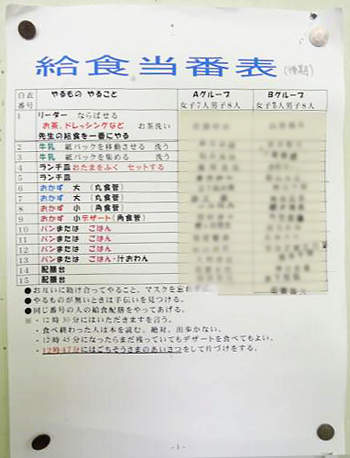 給食当番表 (後期)
白衣番号 やるもの やること Aグループ 女子7人男子8人 Bグループ 女子7人男子8人
1 リーダー ならばせる
お茶、ドレッシングなど お茶洗い
先生の給食を一番にやる
2 牛乳 紙パックを移動させる 洗う
3 牛乳 紙パックを集める 洗う
4 ランチ皿 おたまをふく セットする
5 ランチ皿
6 おかず 大 (丸食管)
7 おかず 大 (丸食管)
8 おかず 小 (角食管)
9 おかず 小 デザート(角食管)
10 パンまたは ごはん
11 パンまたは ごはん
12 パンまたは ごはん
13 パンまたは ごはん・汁おわん
14 配膳台
15 配膳台
●お互いに助け合ってやること。マスクを忘れ
●やるものが無いときは手伝いを見つける。
●同じ番号の人の給食配膳をやってあげる。
※・12時30分にはいただきますを言う。
・食べ終わった人は本を読む。絶対、出歩かない。
・12時45分になったらまだ残っていてもデザートを食べてもよい。
・12時47分にはごちそうさまのあいさつをして片づけをする。
- 1 -